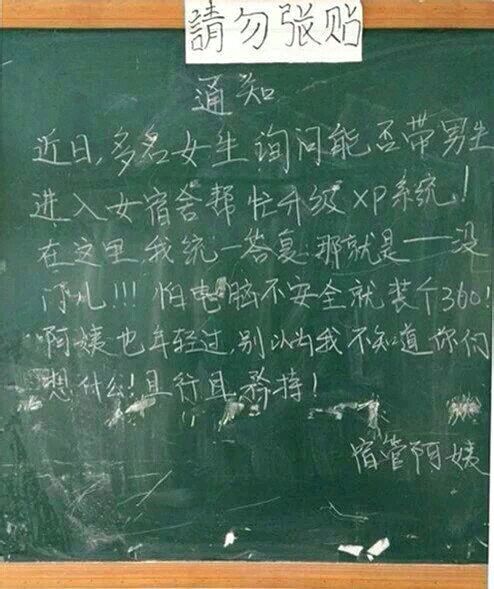 請勿张贴
通知
近日,多名女生询问能否带男生
进入女宿舍帮忙升级XP系统!
在这里我统一答复:那就是——没
门儿!!!怕电脑不安全就装个360!
啊姨也年轻过,别以为我不知道你们
想什么!且行且矜持!
宿管阿姨